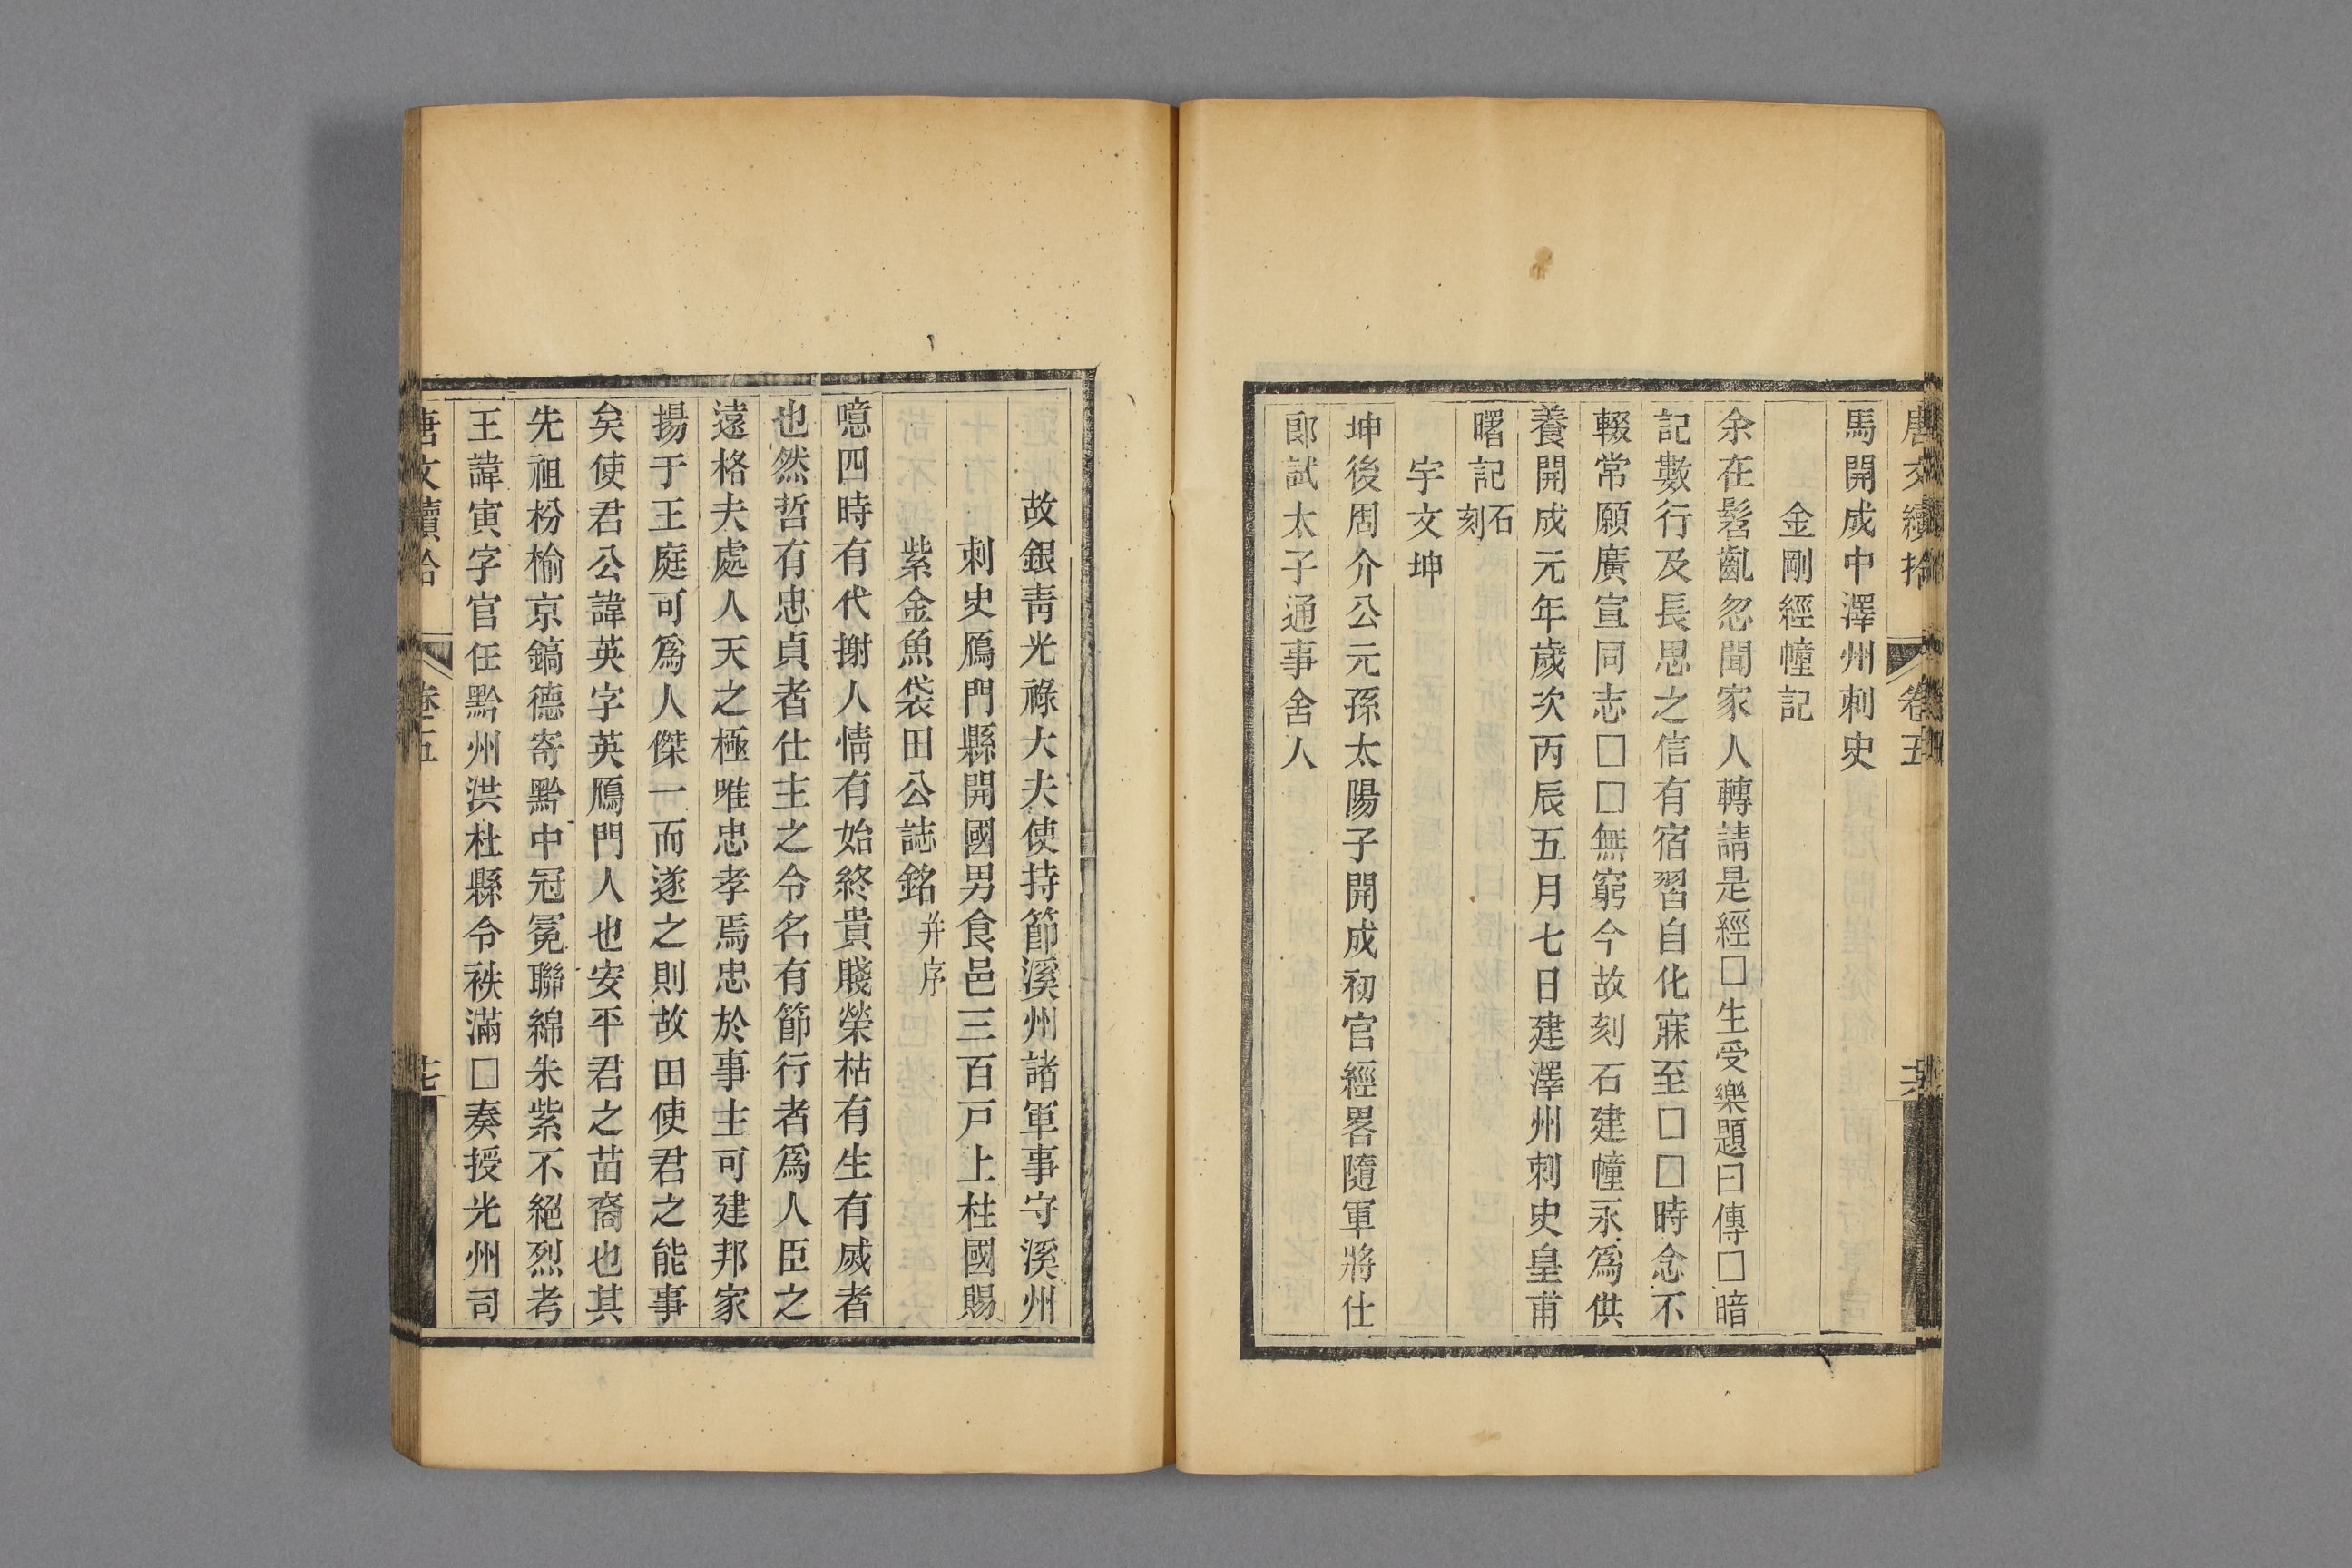 唐文續拾 卷五
馬開成中澤州刺史
金剛經幢記
余在髫齓忽聞家人轉請是經□生受樂題曰傳□暗
記數行及長思之信有宿習自化寐至□□時念不
輟常願廣宣同志□□無窮今故刻石建幢永爲供
養開成元年歲次丙辰五月七日建澤州刺史皇甫
曙記石刻
宇文坤
坤後周介公元孫太陽子開成初官經畧隨軍將仕
郎試太子通事舍人
故銀靑光祿大夫使持節溪州諸軍事守溪州
刺史鴈門縣開國男食邑三百戸上柱國賜
紫金魚袋田公誌銘并序
噫四時有代謝人情有始終貴賤榮枯有生有滅者
也然哲有忠貞者仕主之令名有節行者爲人臣之
遠格夫處人天之極唯忠孝焉忠於事主可建邦家
揚于王庭可爲人傑一而遂之則故田使君之能事
矣使君公諱英字英鴈門人也安平君之苗裔也其
先祖枌榆京鎬德寄黔中冠冕聯綿朱紫不絕烈考
王諱寅字官任黔州洪杜縣令袟滿□奏授光州司
唐文續拾 卷五